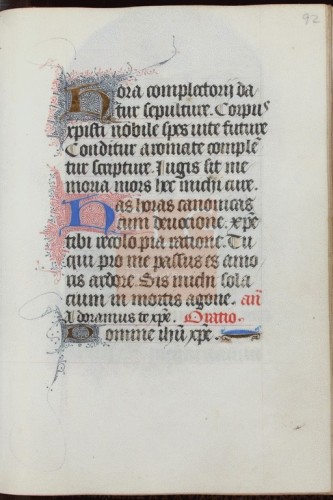 92
Hora completorij da
tur sepulture. Corpus
xpisti nobile spes uite future
Conditur aromate comple
tur scripture. Jugis sit me
moria mors hec michi cure.
Has horas canonicas
cum deuocione. xpe
tibi recolo pia racione. Tu
qui pro me passus es amo
ris ardore. Sis michi sola
cium in mortis agone. an
Adoramus te xpe. Oratio.
Domine ihu xpe.